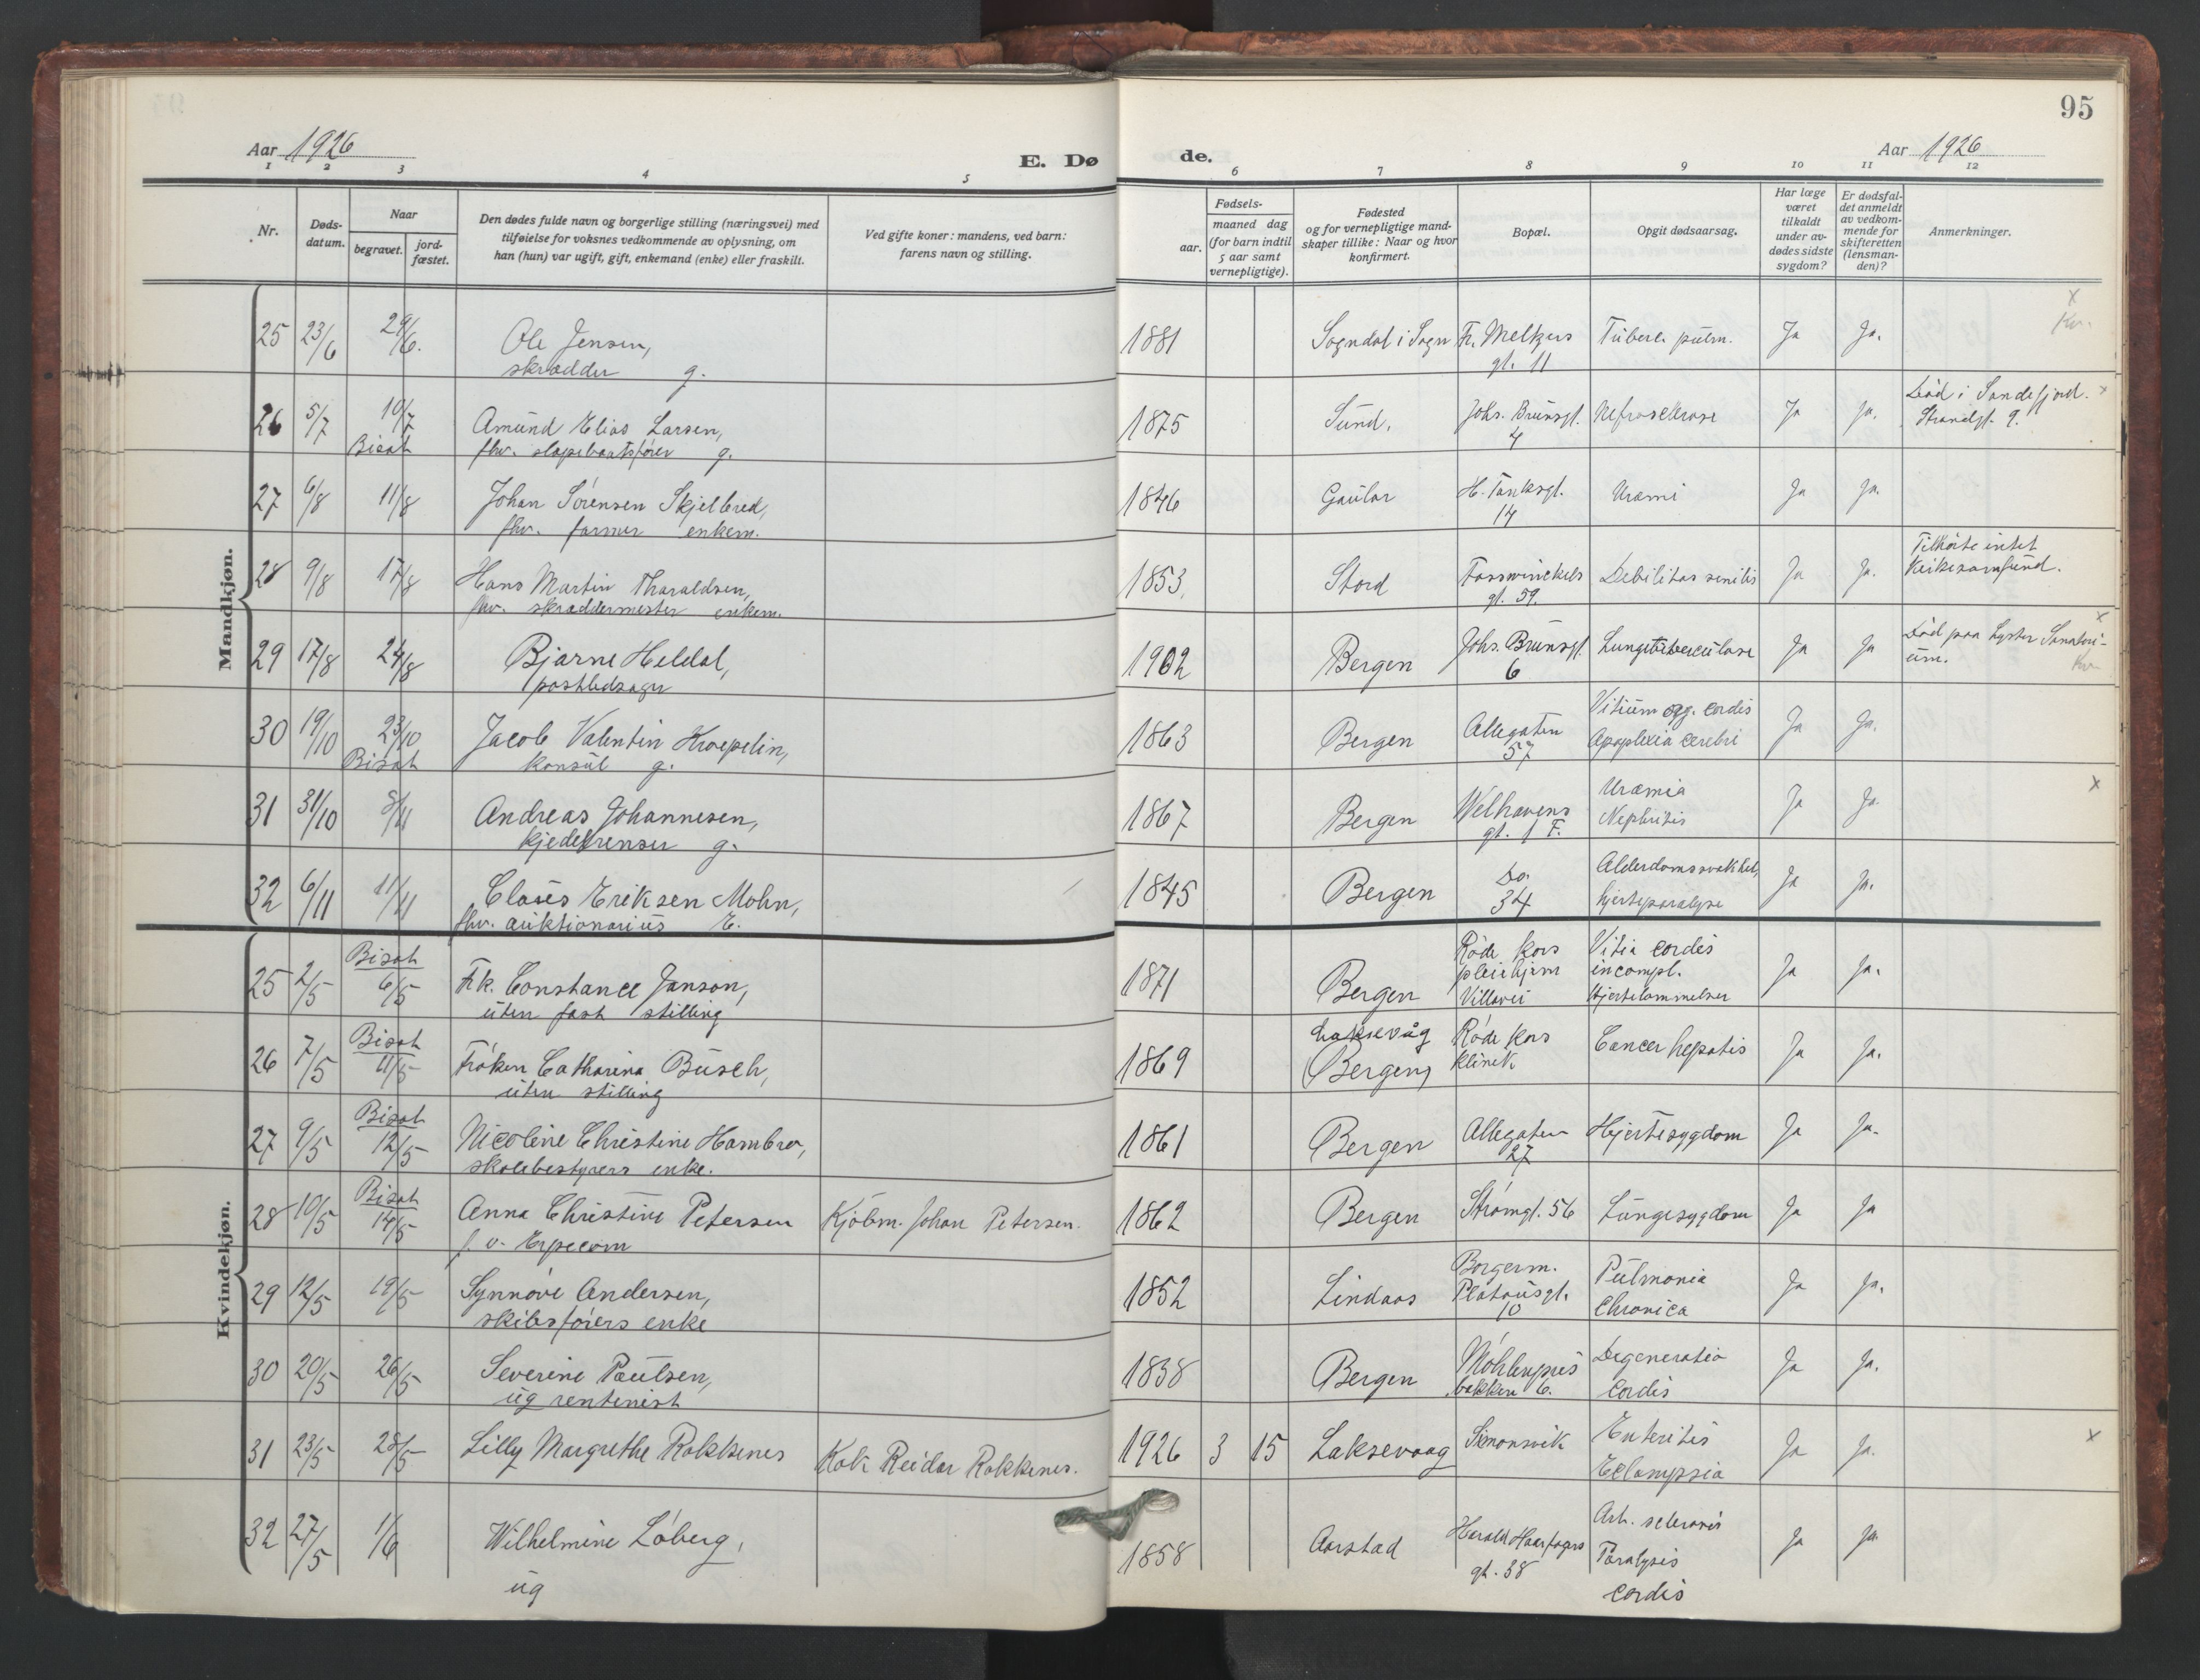 95
Aar 1926
E. Dø de.
Aar 1926
1 2 3 4 5 6 7 8 9 10 11 12
Nr.
Døds-
datum.
Naar
begravet.
jord-
fæstet.
Den dødes fulde navn og borgerlige stilling (næringsvei) med
tilføielse for voksnes vedkommende av oplysning, om
han (hun) var ugift, gift, enkemand (enke) eller fraskilt.
Ved gifte koner: mandens, ved barn:
farens navn og stilling.
Fødsels-
aar.
maaned dag
(for barn indtil
5 aar samt
vernepligtige).
Fødested
og for vernepligtige mand-
skaper tillike: Naar og hvor
konfirmert.
Bopæl.
Opgit dødsaarsag.
Har læge
været
tilkaldt
under av-
dødes sidste
sygdom?
Er dødsfal-
det anmeldt
av vedkom-
mende for
skifteretten
(lensman-
den)?
Anmerkninger.
Mandkjøn.
25 23/6 29/6. Ole Jensen, 1881 Sogndal i Sogn Fr. Meltzers Tuberc. pulm. Ja Ja. x
skrædder g. gt. 11
26 5/7 10/7 Amund Elias Larsen, 1875 Sund. Johs. Brunsgt. Nefrosklerose Ja Ja. Død i Sandefjord. x
Bisat fhv. slæpebaatsfører g. 4 Strandgt. 9.
27 6/8 11/8 Johan Sørensen Skjelbred, 1846 Gaular H. Tanksgt. Uræmi Ja Ja.
fhv. farmer enkem. 14
28 9/8 17/8 Hans Martin Tharaldsen, 1853. Stord Fosswinckels Debilitas senilis Ja Ja. Tilhørte intet
fhv. skræddermester enkem. gt. 59. kirkesamfund.
29 17/8 24/8 Bjarne Heldal, 1902 Bergen Johs. Brunsgt. Lungetuberculose Ja Ja Død paa Lyster Sanatori- x
postledsager 6 um.
30 19/10 23/10 Jacob Valentin Kroepelin, 1863 Bergen Allegaten Vitium org. cordis Ja Ja.
Bisat konsul g. 57 Apoplexia cerebri
31 31/10 8/11 Andreas Johannesen, 1867 Bergen Welhavens Uræmia Ja Ja. x
kjedelrenser g. gt. 1 F. Nephritis
32 6/11 11/11 Claus Eriksen Mohn, 1845 Bergen Do. Alderdomssvakhet, Ja Ja.
fhv. auktionarius E. 34 hjerteparalyse
Kvindekjøn.
25 2/5 Bisat Frk. Constance Janson, 1871 Bergen Røde kors Vitia cordis Ja Ja.
6/5 uten fast stilling pleiehjem incompl.
Villavei Hjertelammelser
26 7/5 Bisat Frøken Catharina Busch, 1869 Laksevåg Røde kors Cancer hepatis Ja Ja.
11/5 uten stilling (Bergen) klinik
27 9/5 Bisat Nicoline Christine Hambro, 1861 Bergen Allegaten Hjertesygdom Ja Ja.
12/5 skolebestyrers enke. 27
28 10/5 Bisat Anna Christine Petersen Kjøbm. Johan Petersen. 1862 Bergen Strømgt. 56 Lungesygdom Ja Ja
14/5 f. v. Erpecom
29 12/5 19/5 Synnøve Andersen, 1852 Lindaas Borgerm. Pulmonia Ja Ja.
skibsførers enke Platousgt. Chronica
10
30 20/5 26/5 Severine Paulsen, 1838 Bergen Møhlenpris Degeneratio Ja Ja.
ug rentenist bakken 6. Cordis
31 23/5 28/5 Lilly Margrethe Rokkenes Kok Reidar Rokkenes. 1926 3 15 Laksevaag Simonsvik Enteritis Ja Ja. x
Eclampsia
32 27/5 1/6 Wilhelmine Løberg, 1858 Aarstad Harald Haarfagres Art. sclerosis Ja Ja.
ug gt. 38 Paralysis
cordis